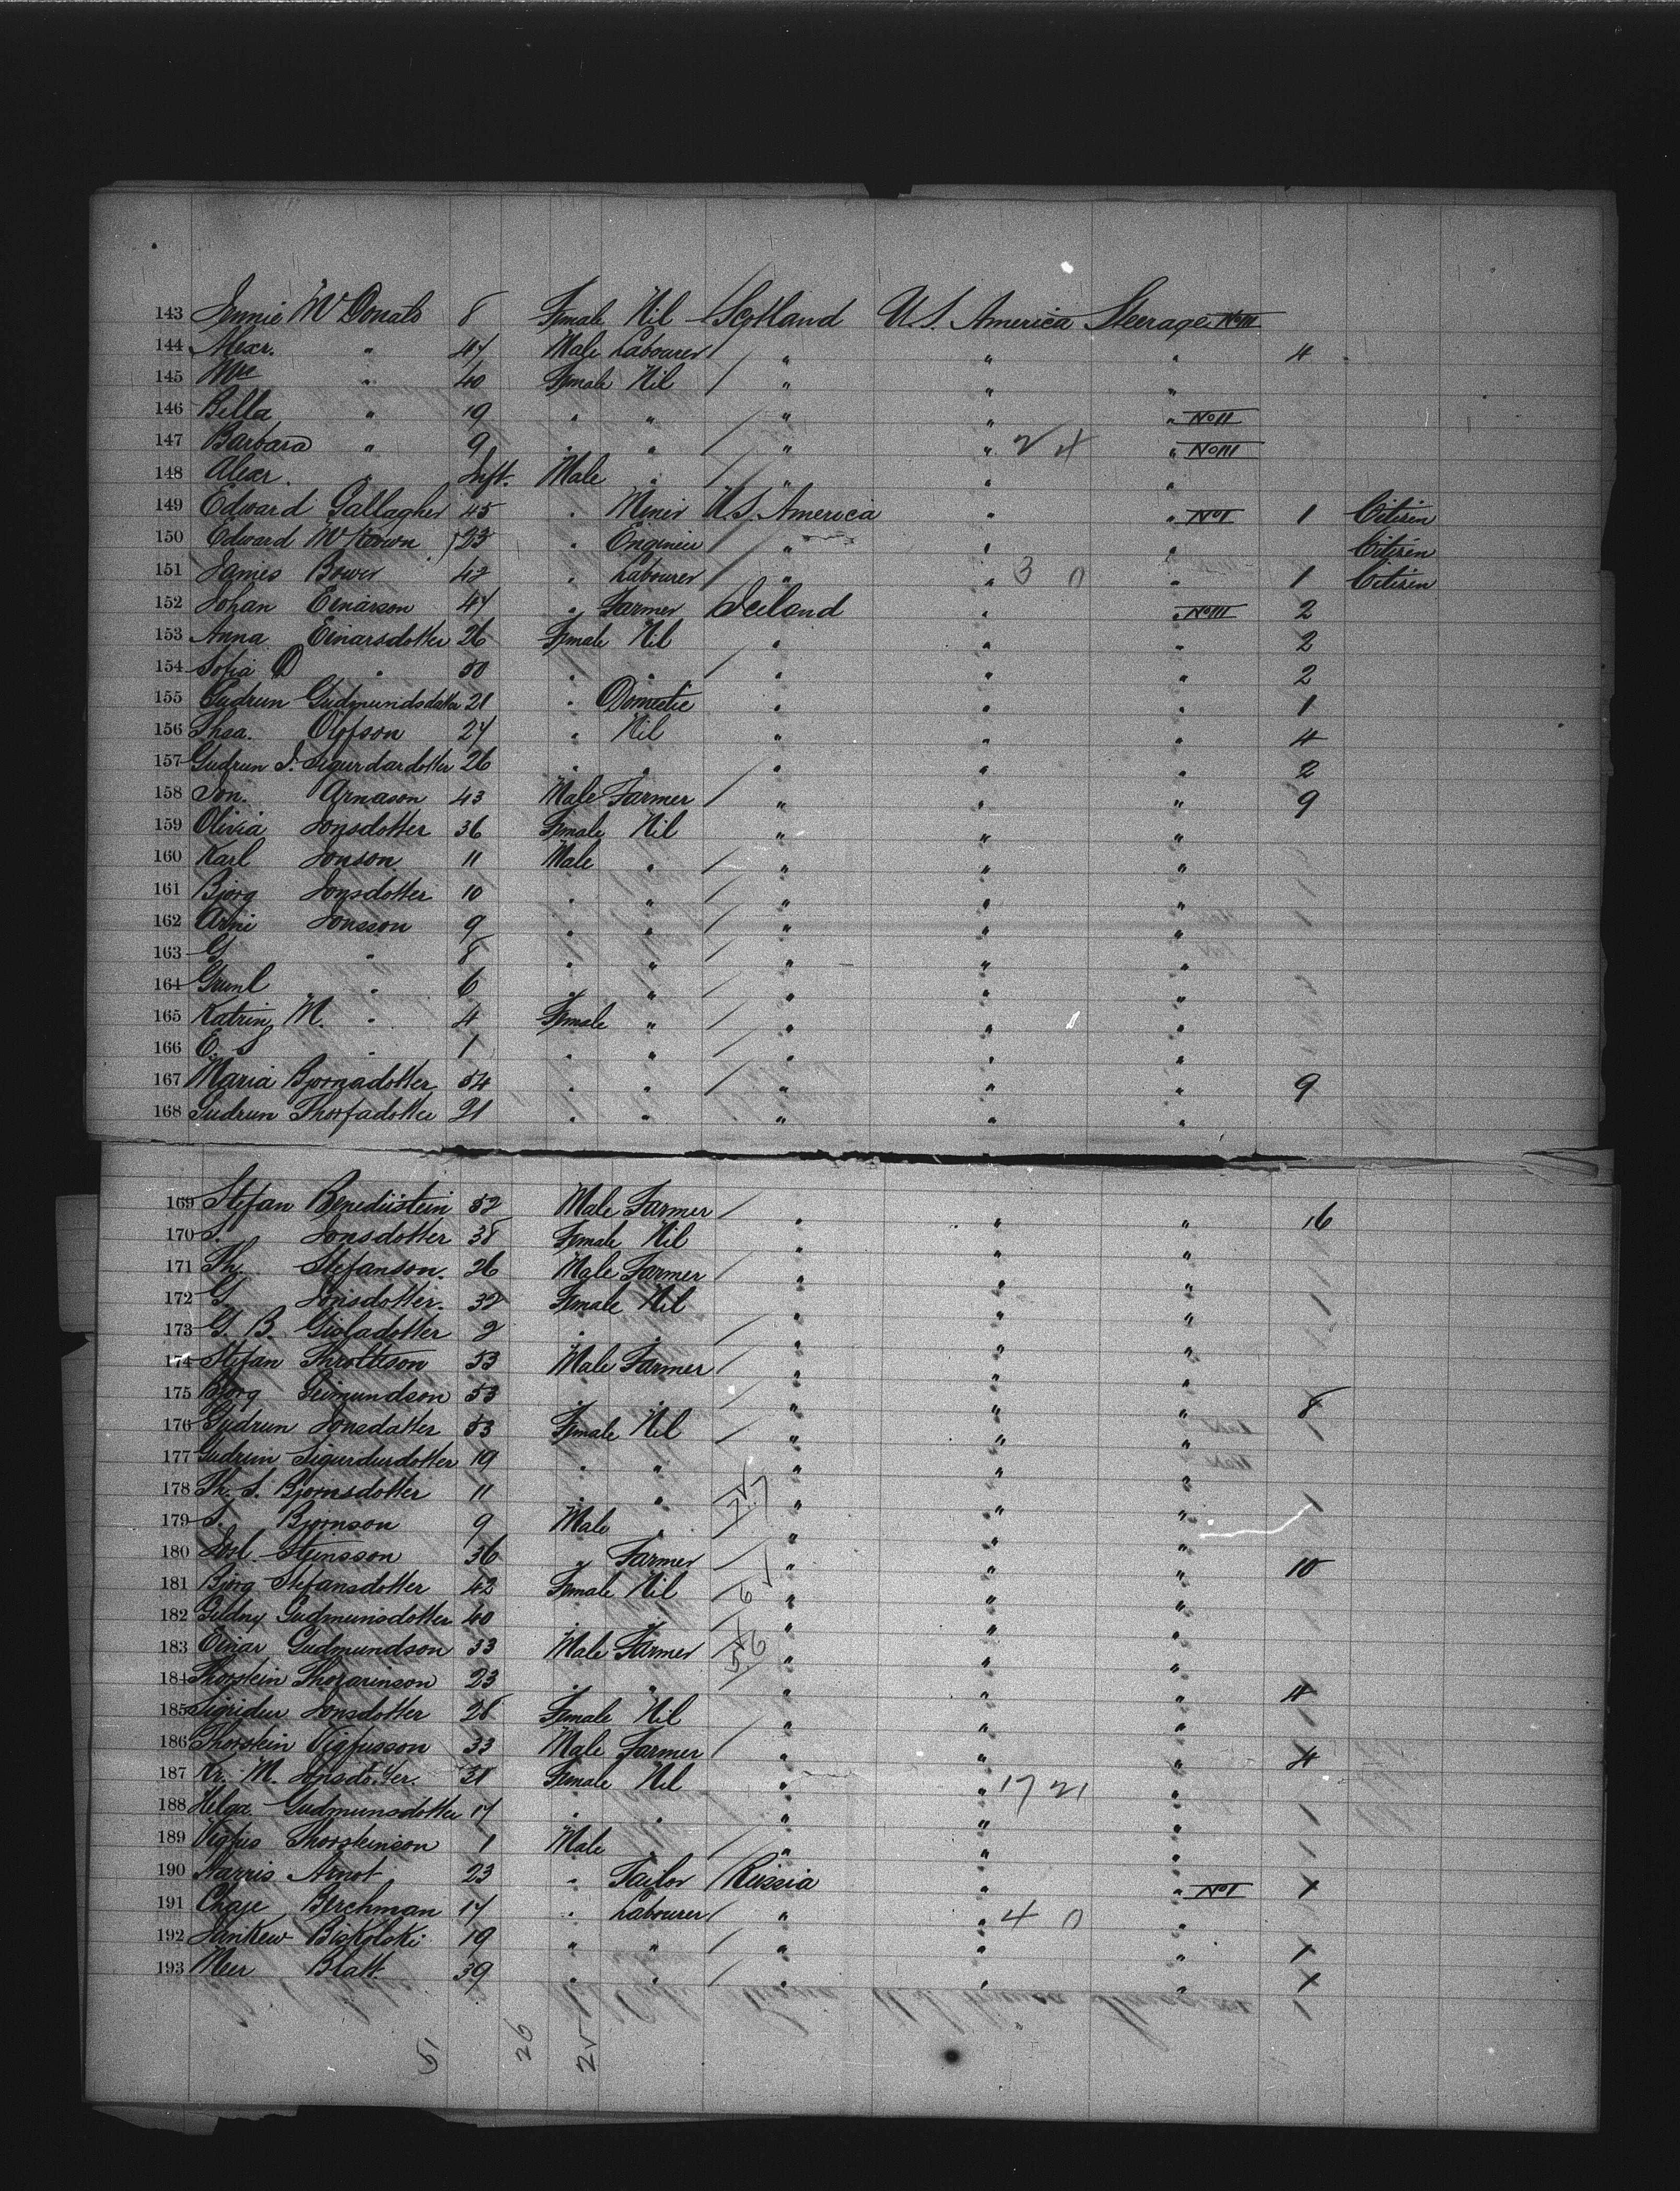 143 Jennie McDonald 8 Female Nil Scotland U.S. America Steerage No III
144 Alexr. " 47 Male Labourer " " " 4
145 Mrs " 40 Female Nil " " "
146 Bella " 19 " " " " " No II
147 Barbara " 9 " " " " 2 4 " No III
148 Alexr. " Inft. Male " " " "
149 Edward Gallagher 45 " Miner U.S. America " " No I 1 Citizen
150 Edward McKown 23 " Engineer " " " Citizen
151 James Bower 42 " Labourer " " 3 0 " 1 Citizen
152 Johan Einarson 47 " Farmer Iceland " " No III 2
153 Anna Einarsdotter 26 Female Nil " " " 2
154 Sofia O " 50 " " " " " 2
155 Gudrun Gudmundsdatter 21 " Domestic " " " 1
156 Thsa. Olofson 27 " Nil " " " 4
157 Gudrun S. Sigurdardotter 26 " " " " " 2
158 Jon. Arnason 43 Male Farmer " " " 9
159 Olivia Jonsdotter 36 Female Nil " " "
160 Karl Jonson 11 Male " " " "
161 Bjorg Jonsdotter 10 " " " " "
162 Arni Jonsson 9 " " " " "
163 G " 8 " " " " "
164 " 6 " " " " "
165 Katrin M. " 4 Female " " " "
166 E. S " 1 " " " " "
167 Maria Bjornadotter 54 " " " " " 9
168 Gudrun Thorfadotter 21 " " " " "
169 Stefan 52 Male Farmer " " " 16
170 S. Jonsdotter 38 Female Nil " " "
171 Th. Stefanson. 26 Male Farmer " " "
172 G Jonsdotter. 32 Female Nil " " "
173 G. B. Gisladotter 2 " " " " "
174 Stefan 53 Male Farmer " " "
175 Bjorg 53 " " " " " 8
176 Gudrun Jonsdatter 53 Female Nil " " "
177 Gudrun Sigurdurdotter 19 " " " " "
178 Th. S. Bjornsdotter 11 " " " " "
179 S. Bjornson 9 Male " " " "
180 Steinsson 36 " Farmer " " " 10
181 Bjorg Stefansdotter 42 Female Nil " " "
182 Gudny Gudmunsdotter 40 " " " " "
183 Einar Gudmundson 33 Male Farmer " " "
184 Thorstein Thorarinson 23 " " " " " 4
185 Sigridur Jonsdotter 28 Female Nil " " "
186 Thorstein Vigfusson 33 Male Farmer " " " 4
187 Kr. M. Jonsdotter. 31 Female Nil " " 17 21 "
188 Helga Gudmunsdotter 17 " " " " "
189 Vigfus Thorsteinson 1 Male " " " "
190 Harris Arnot 23 " Tailor Russia " " No I 1
191 Chaje Berchman 17 " Labourer " " 4 0 "
192 Jankew Biskolski 19 " " " " " 1
193 Meer Blatt. 39 " " " " " 1
51 26 25